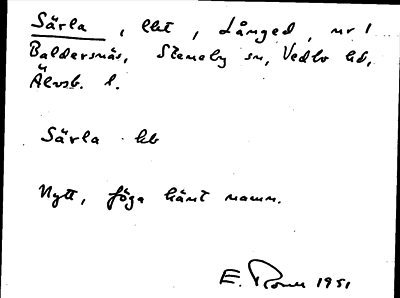 Särla, lht, Långed, nr 1
Baldersnäs, Steneby sn, Vedbo hd,
Älvsb. l.
Särla
Nytt, föga känt namn.
E. 1951